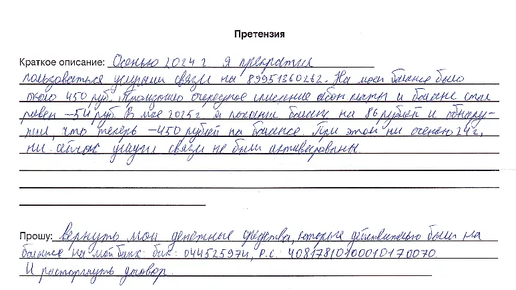 Претензия
Краткое описание: Осенью 2024 г я прекратил
пользоваться услугами связи на 89951360262. На моём балансе было
около 450 руб. Произошло очередное списание абон платы и баланс стал
равен -54 руб. В мае 2025г. я пополнил баланс на 86 рублей и обнару-
жил, что теперь -450 рублей на балансе. При этом ни осенью 24г,
ни сейчас услуги связи не были активированы.
Прошу: вернуть мои денежные средства, которые действительно были на
балансе на мой банк. бик: 044525974, Р.С. 40817810100010170070.
И расторгнуть договор.